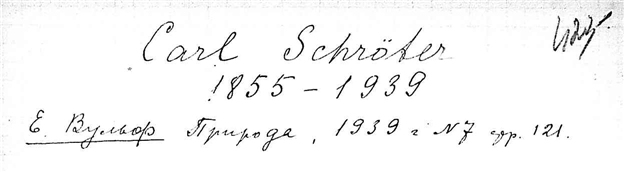 Carl Schröter
1855 – 1939
Е. Вульф Природа, 1939 г N 7 стр. 121.